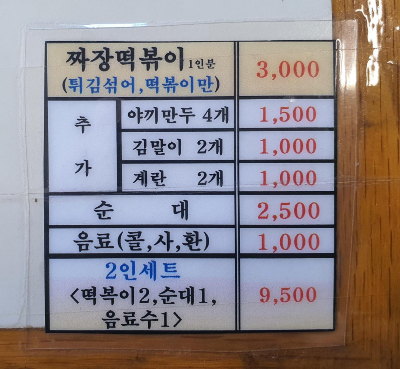 짜장떡볶이 1인분 3,000
(튀김섞어,떡볶이만)
추가
야끼만두 4개 1,500
김말이 2개 1,000
계란 2개 1,000
순대 2,500
음료(콜,사,환) 1,000
2인세트
<떡복이2,순대1, 9,500
음료수1>